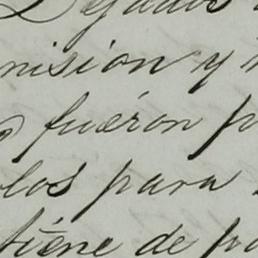 nision y
fuéron p
los para
tiéne de pa